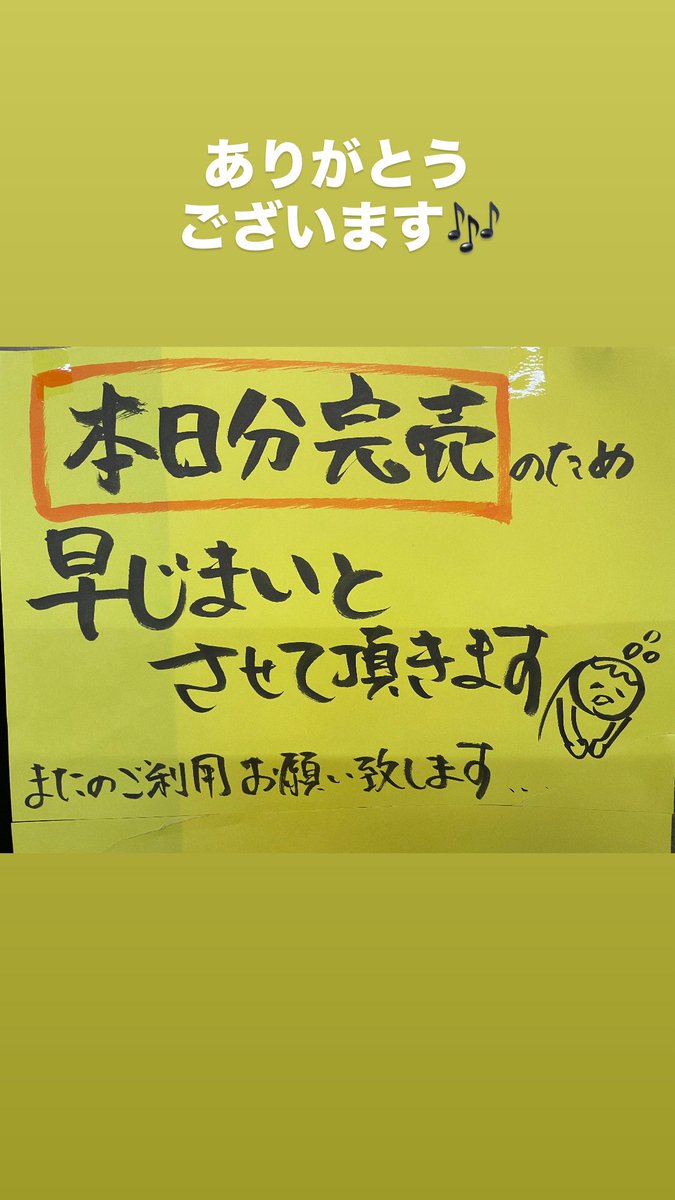 ありがとう
ございます🎶
本日分完売のため
早じまいと
させて頂きます
またのご利用お願い致します...